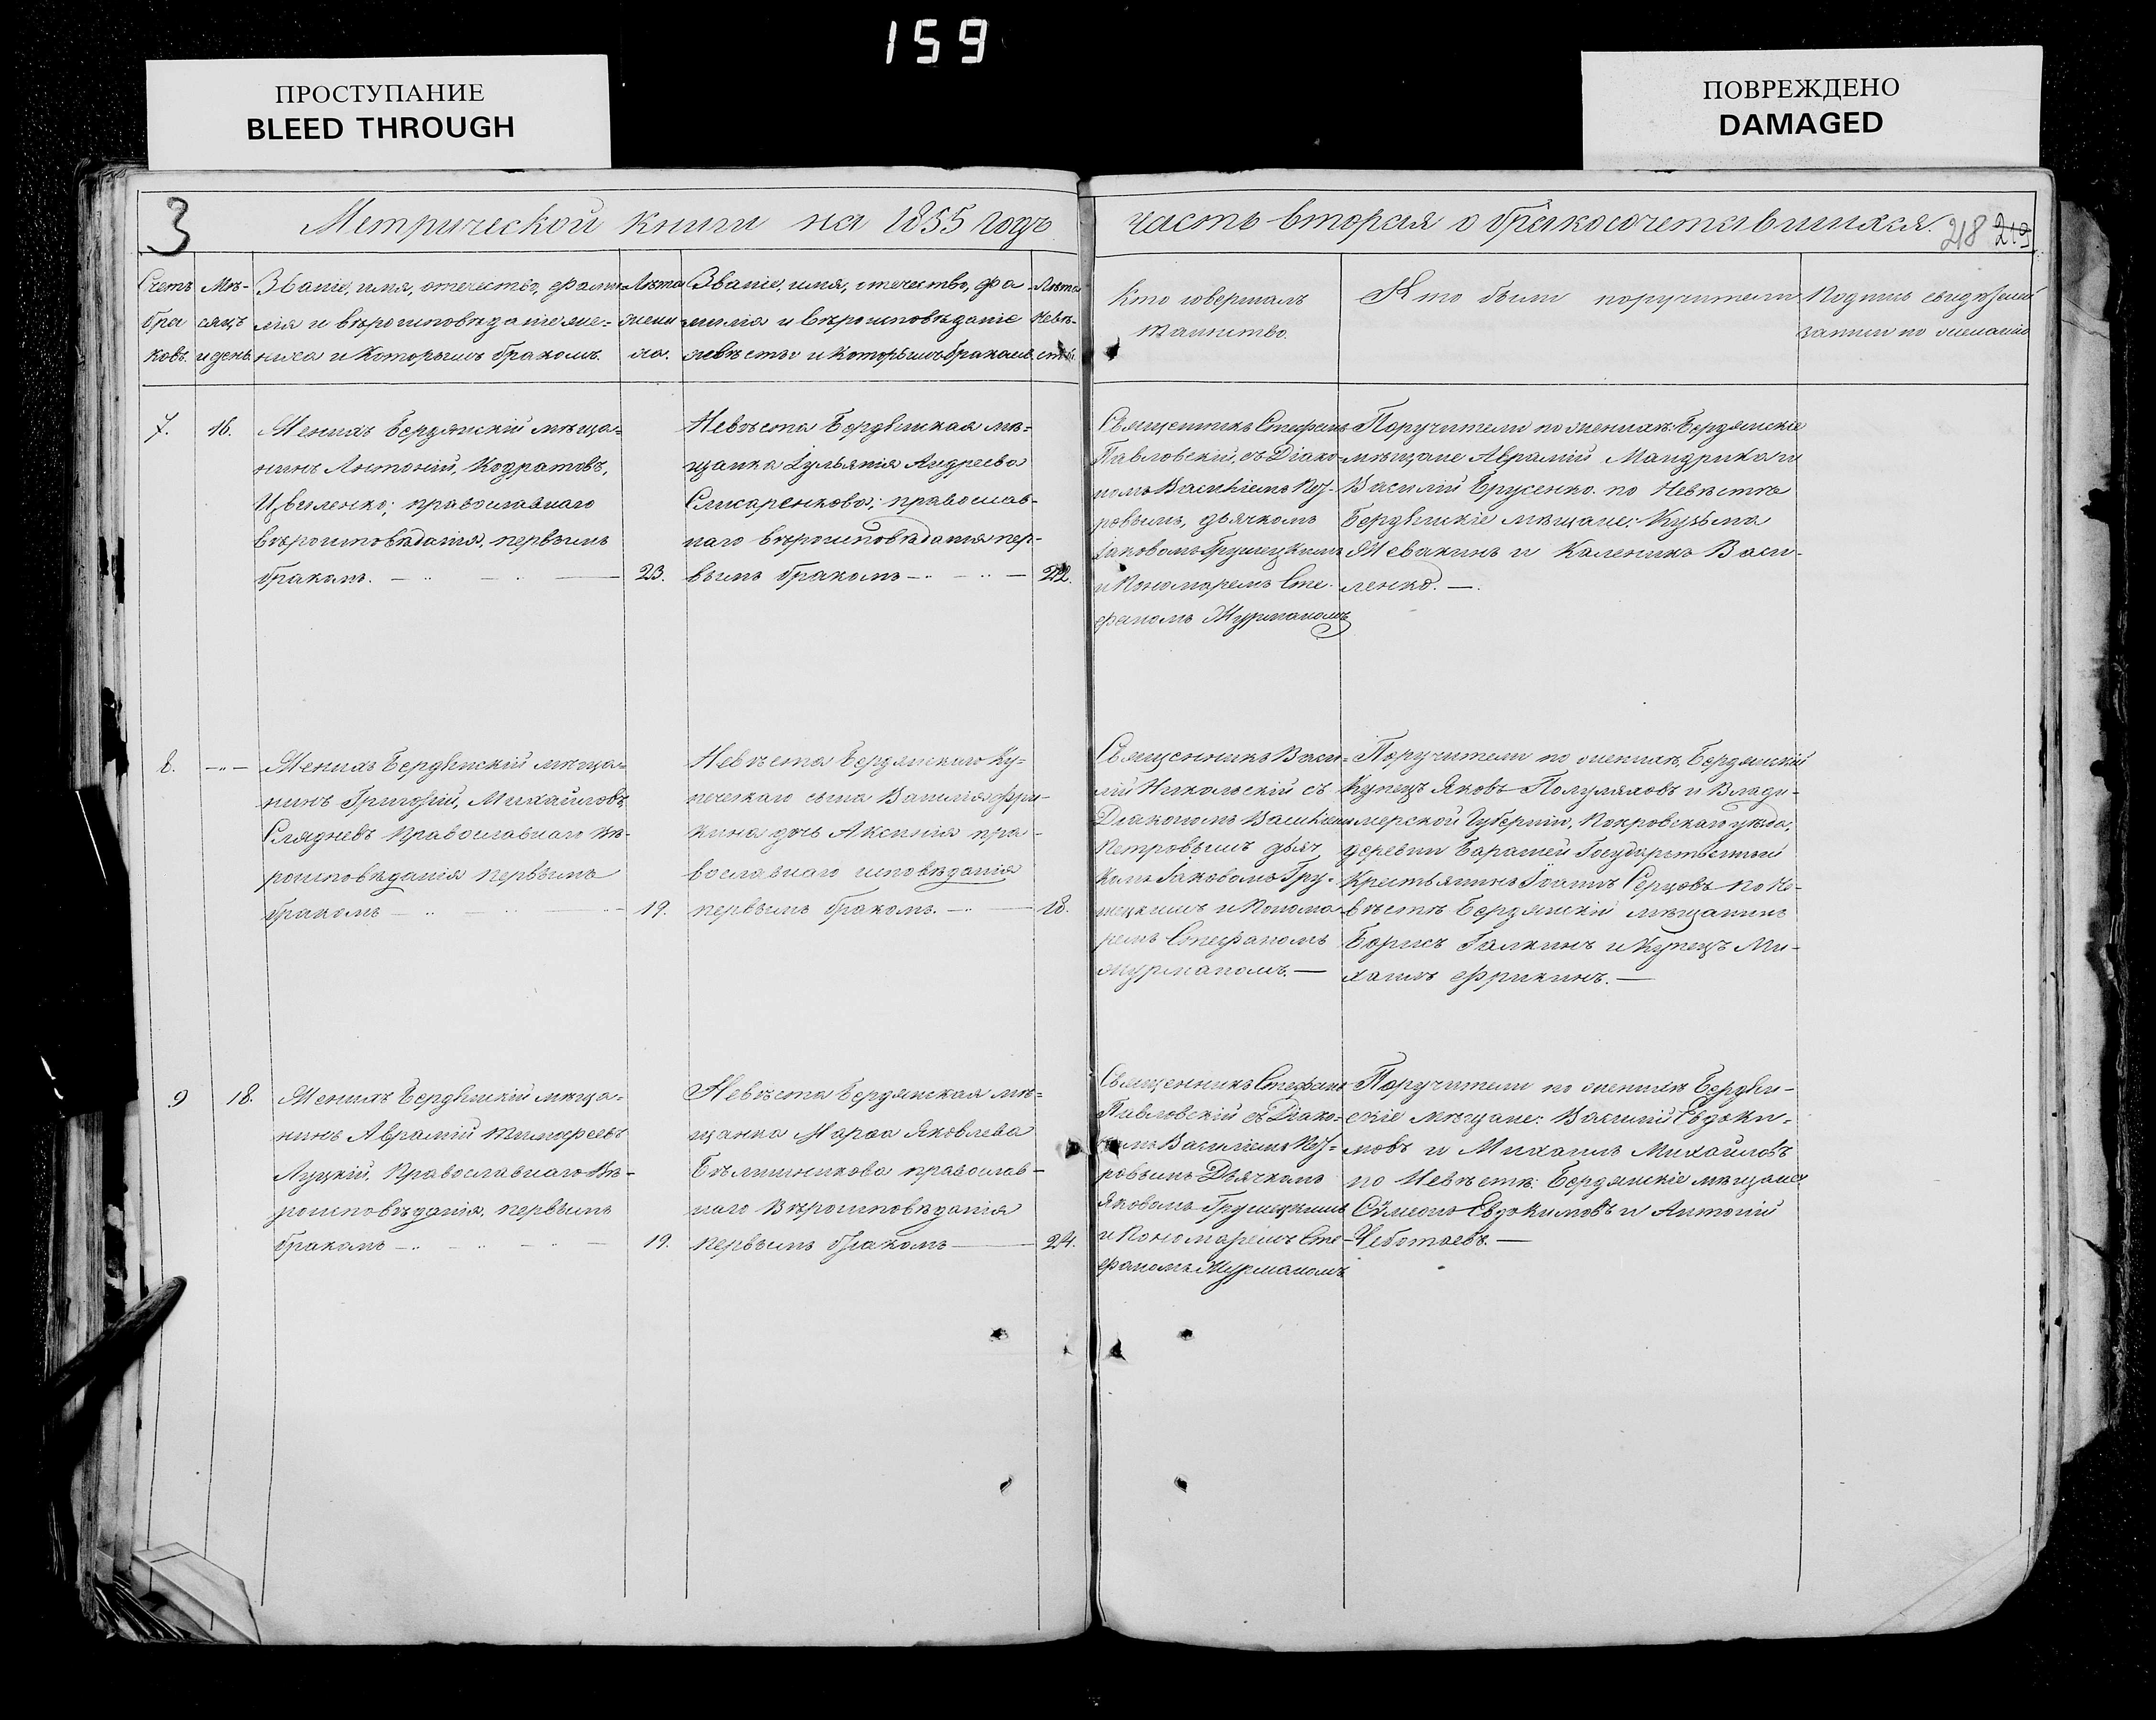 159
ПРОСТУПАНИЕ
BLEED THROUGH
ПОВРЕЖДЕНО
DAMAGED
3
Метрической книги на 1855 годъ
часть вторая о бракосочетавшихся.
218 219
Счетъ
бра
ковъ.
Мѣ-
сяцъ
и день
Званіе, имя, отечество, фами-
лія и вѣроисповѣданіе же-
ниха и которымъ бракомъ.
Лѣта
жени
ха.
Званіе, имя, отечество, фа-
милія и вѣроисповѣданіе
невѣсты и которымъ бракомъ
Лѣта
невѣ-
сты
Кто совершалъ
таинство.
Кто были поручители
Подпись свидѣтелей
записи по желанію
7.
16.
Женихъ Бердянскій мѣща-
нинъ Антоній, Кодратовъ,
Цвиленко; православнаго
вѣроисповѣданія, первымъ
бракомъ.
23.
Невѣста Бердянская мѣ-
щанка Іульянія Андреева
Слисаренкова; православ-
наго вѣроисповѣданія пер-
вымъ бракомъ
22.
Священникъ Стефанъ
Павловскій, съ Діако-
номъ Василіемъ Пет-
ровымъ, дьячкомъ
Іаковомъ Грунецкимъ
и Пономаремъ Сте-
фаномъ Журманомъ
Поручители по женихѣ: Бердянскіе
мѣщане Аврамій Мандрика и
Василій Брусенко. по Невѣстѣ
Бердянскіе мѣщане: Кузьма
Жевакинъ и Каленикъ Васи-
ленко.
8.
Женихъ Бердянскій мѣща-
нинъ Григорій, Михайловъ
Слядневъ Православнаго вѣ-
роисповѣданія первымъ
бракомъ
19.
Невѣста Бердянскаго Ку-
печескаго сына Василія Фри-
кина дочь Аксинія пра-
вославнаго исповѣданія
первымъ бракомъ.
18.
Священникъ Васи-
лій Никольскій съ
Діакономъ Василіемъ
Петровымъ дьяч
комъ Іаковомъ Гру-
нецкимъ и Понома
ремъ Стефаномъ
Журманомъ.
Поручители по женихѣ, Бердянскій
Купецъ Яковъ Полуляховъ и Влади-
мерской Губерніи, Покровскаго уѣзда,
деревни Государственный
Крестьянинъ Іоаннъ Серцовъ по Не-
вѣстѣ Бердянскій мѣщанинъ
Борисъ Галкинъ и Купецъ Ми-
хаилъ Фрикинъ.
9
18.
Женихъ Бердянскій мѣща-
нинъ Аврамій Тимофеевъ
Луцкій, Православнаго вѣ-
роисповѣданія, первымъ
бракомъ
19.
Невѣста Бердянская мѣ-
щанка Марѳа Яковлева
Бѣлинникова православ-
наго Вѣроисповѣданія
первымъ бракомъ
24.
Священникъ Стефанъ
Павловскій съ Діако-
номъ Василіемъ Пет-
ровымъ Дьячкомъ
Яковомъ Грунецкимъ
и Пономаремъ Сте-
фаномъ Журманомъ
Поручители по женихѣ Бердян-
скіе мѣщане: Василій Евдоки-
мовъ и Михаилъ Михайловъ
по Невѣстѣ: Бердянскіе мѣщане
Сѵмеонъ Евдокимовъ и Антоній
Чеботаевъ.